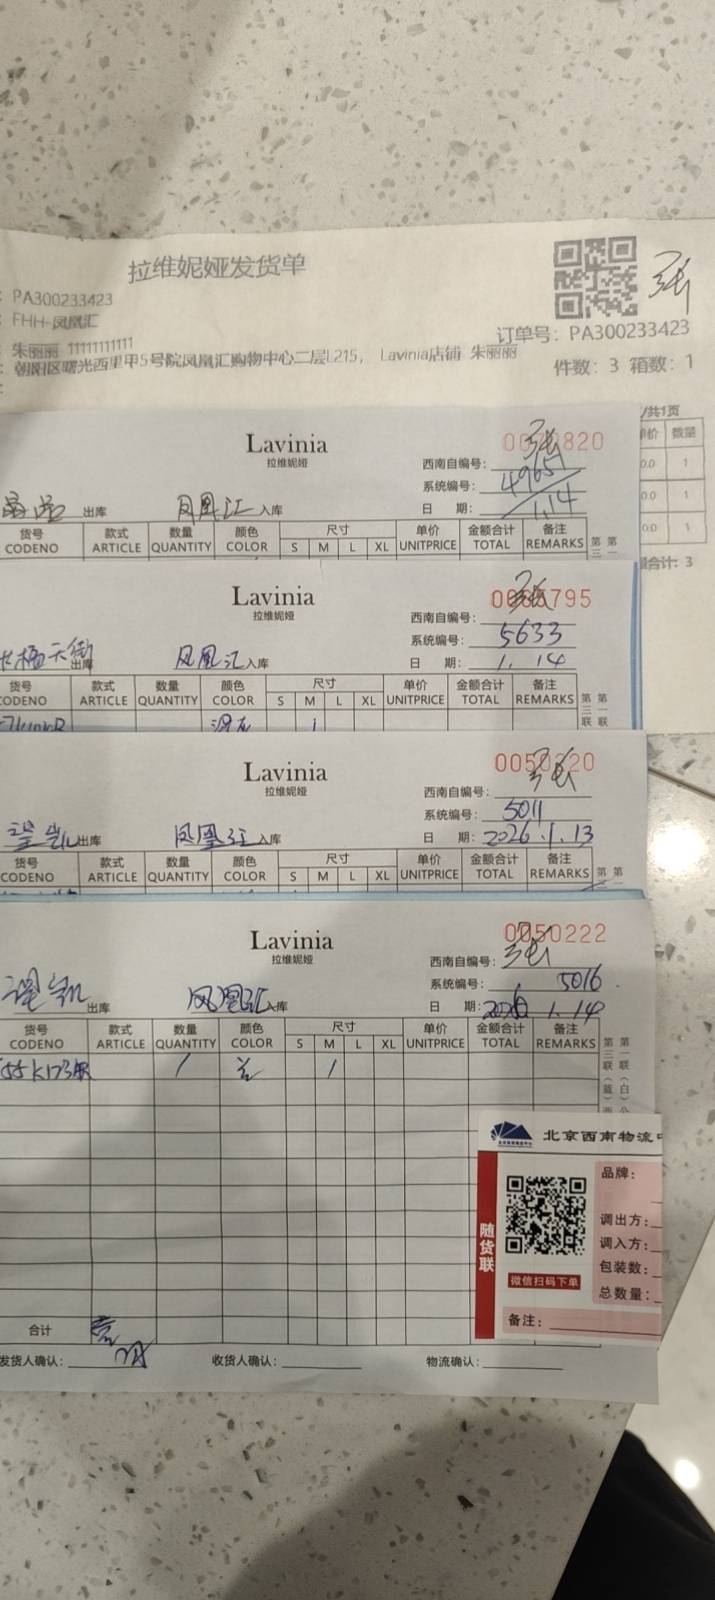 拉维妮娅发货单
PA300233423
FHH-凤凰汇
订单号: PA300233423
朱丽丽 11111111111
朝阳区曙光西里甲5号院凤凰汇购物中心二层L215, Lavinia店铺 朱丽丽
件数: 3 箱数: 1
/共1页
单价 数量
0.0 1
0.0 1
0.0 1
合计: 3
Lavinia
拉维妮娅
820
西南自编号:
系统编号: 4965
日 期: 1.14
出库 凤凰汇 入库
货号 款式 数量 颜色 尺寸 单价 金额合计 备注
CODENO ARTICLE QUANTITY COLOR S M L XL UNITPRICE TOTAL REMARKS
Lavinia
拉维妮娅
795
西南自编号:
系统编号: 5633
日 期: 1.14
天街 出库 凤凰汇 入库
货号 款式 数量 颜色 尺寸 单价 金额合计 备注
CODENO ARTICLE QUANTITY COLOR S M L XL UNITPRICE TOTAL REMARKS
第三联 第一联
Lavinia
拉维妮娅
西南自编号: 张
系统编号: 5011
日 期: 2026.1.13
出库 凤凰汇 入库
货号 款式 数量 颜色 尺寸 单价 金额合计 备注
CODENO ARTICLE QUANTITY COLOR S M L XL UNITPRICE TOTAL REMARKS
Lavinia
拉维妮娅
0050222
西南自编号: 张
系统编号: 5016
日 期: 1.14
出库 凤凰汇 入库
货号 款式 数量 颜色 尺寸 单价 金额合计 备注
CODENO ARTICLE QUANTITY COLOR S M L XL UNITPRICE TOTAL REMARKS
1 1
第三联(蓝) 第一联(白)
北京西南物流中
随货联
微信扫码下单
品牌:
调出方:
调入方:
包装数:
总数量:
备注:
合计
发货人确认: 收货人确认: 物流确认: